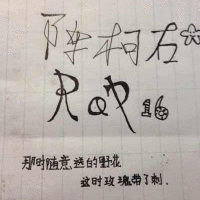 陈柯右
RaP 16
那时随意选的野花
这时玫瑰带了刺.